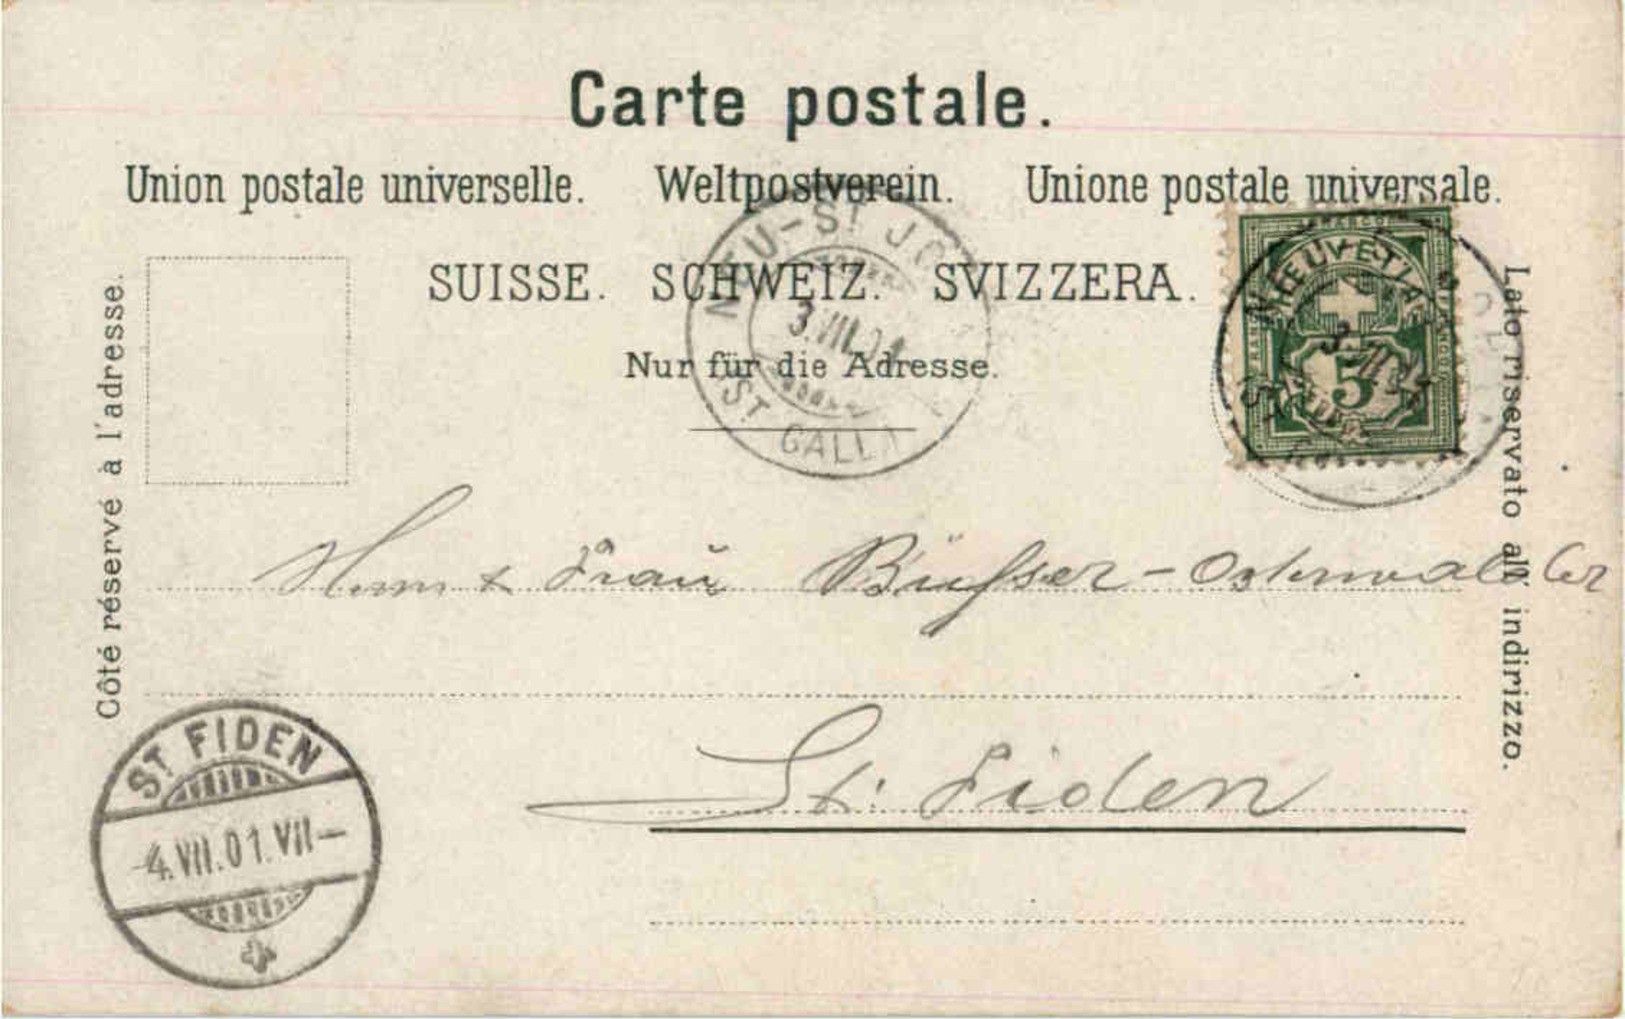 Carte postale.
Union postale universelle. Weltpostverein. Unione postale universale.
SUISSE. SCHWEIZ. SVIZZERA.
Nur für die Adresse.
Côté réservé à l'adresse.
Lato riservato all' indirizzo.
NEU-ST. JO
3.VII.01
(ST. GALL
HELVETIA
5
Frau Büsser-Osterwalder
St. Fiden
ST FIDEN
-4.VII.01.VII-